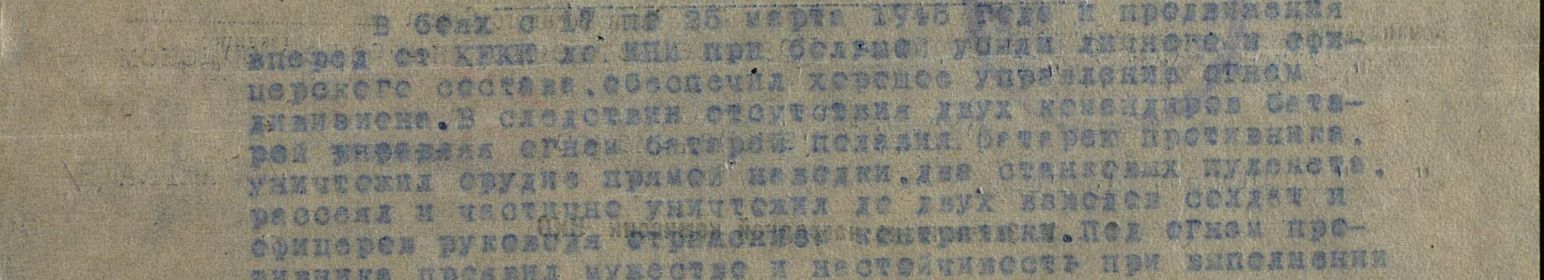 В боях с 17 по 25 марта 1945 года и продвижения
вперед от КЮКИ до ИПИ при большой убыли личного и офи-
церского состава, обеспечил хорошее управление огнем
дивизиона. В следствии отсутствия двух командиров бата-
рей управляя огнем батарей подавил батарею противника,
уничтожил орудие прямой наводки, два станковых пулемета,
рассеял и частично уничтожил до двух взводов солдат и
офицеров руководя отражением контратаки. Под огнем про-
тивника проявил мужество и настойчивость при выполнении